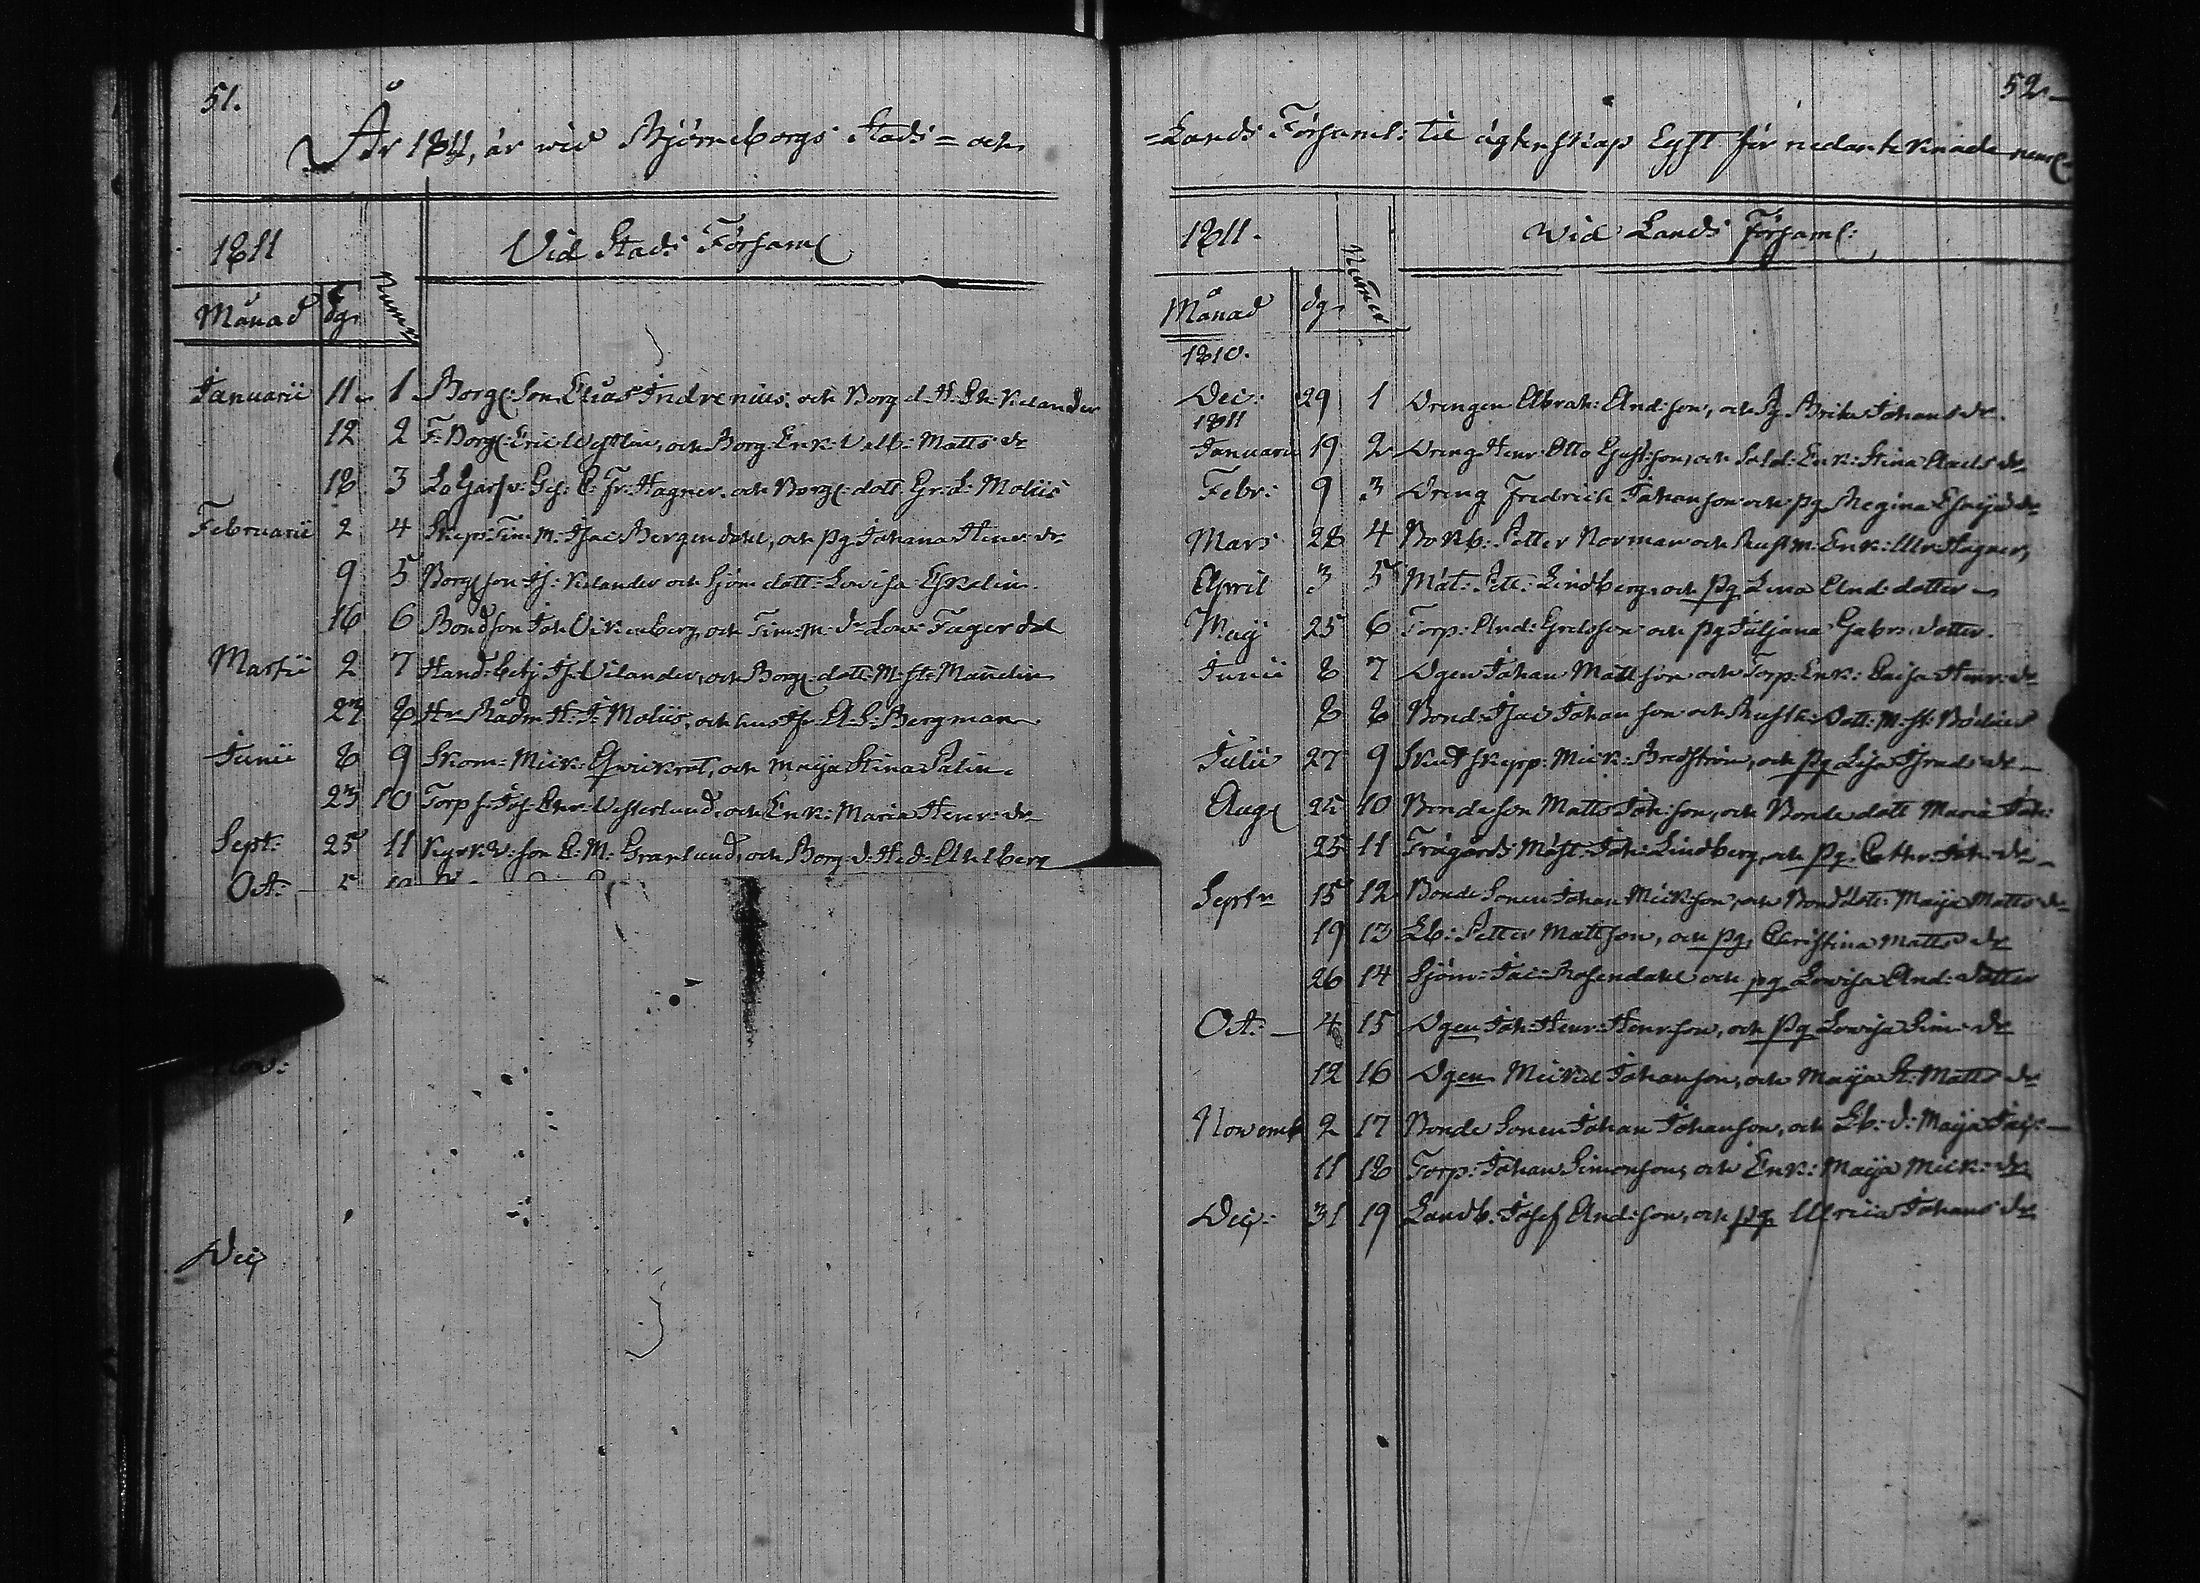 51.
År 1811, är wid Björneborgs Stads- och
1811
Vid Stads Församl
Månad dg. Numer
Januarii 11 1 Borgl. Son Elias Indrenius, och Borg. d. H. Kielander
12 2 F. Borgl: Eric Westlin, och Borg: Enk: Valb: Matts dr
18 3 och Borgl: dott. Gr. L: Moliis
Februarii 2 4 Skeps Tim. M. Isac Bergendahl, och pg Johana Henr. dr
9 5 Borgl son Is: Kielander och Sjöm dott: Lovisa Eskelin
16 6 Bondson Joh och Tim: m: dr Lov: Fagerdal
Martii 2 7 Hand. betj Is. Vilander, och Borgl. dott. M. St. Manelin
27 8 Hr Rådm H. I. Moliis, och A. S. Bergman
Junii 8 9 Skom: Mick: Qwickent, och Maija Stina Palin
23 10 Torp s. Joh. Enr. Westerlund, och Enk: Maria Henr: dr
Sept: 25 11 Kyrk. V: son C. M. Granlund, och Borg. d. Hed. Ekelberg
Oct: 5
Nov:
Dec
52.
-Lands Församl: til ägtenskap Lyst för nedantecknade neml
1811.
Wid Lands Församl:
Månad dg. Numer
1810.
Dec: 29 1 Drengen Abrah: And:son, och Pg. Brita Johans dr.
1811
Januarii 19 2 Dreng Henr. Otto Gust:son, och Sold: Enk: Stina Carls dr
Febr: 9 3 Dreng Fredrich Johanson och pg Regina Esaijæ dr
Mars 28 4 Petter Norman och Rust m: Enk: Ulr. Hagner,
April 3 5 Mat: Pett: Lindberg, och pg Lena And: dotter
Maij 25 6 Torp: And: Grelsson och pg Juljana Gabr: dotter.
Junii 8 7 Dgen Johan Mattsson och Torp: Enk: Caisa Henr: dr
8 8 Bond: Isac Johanson och Rusth: Dott: M: St: Bödker
Julii 27 9 Skutskepp: Mick: Bredström, och pg Lisa Isracls dr
Aug 25 10 Bondeson Matts Joh:son, och Bonde dott Maria Joh:
25 11 Trägårds Mäst: Joh: Lindberg, och pg: Cathr: Joh: dr
Septr 15 12 Bonde Sonen Johan Mickson, och Bond dott: Maija Matts dr
19 13 Lb: Petter Mattson, och pg. Christina Matts dr
26 14 Sjöm: Jac: Rosendahl och pg Lovisa And: dotter
Oct: 4 15 Dgen Joh: Henr: Henrson, och pg Lovisa Sim: dr
12 16 Dgen Mickel Johanson, och Maija St: Matts dr
Novemb 2 17 Bonde Sonen Johan Johanson, och Lb: d: Maija Jac:
11 18 Torp: Johan Simonson, och Enk: Maija Mick: dr
Dec: 31 19 Landb: Josef And:son, och pg Ulrica Johans dr